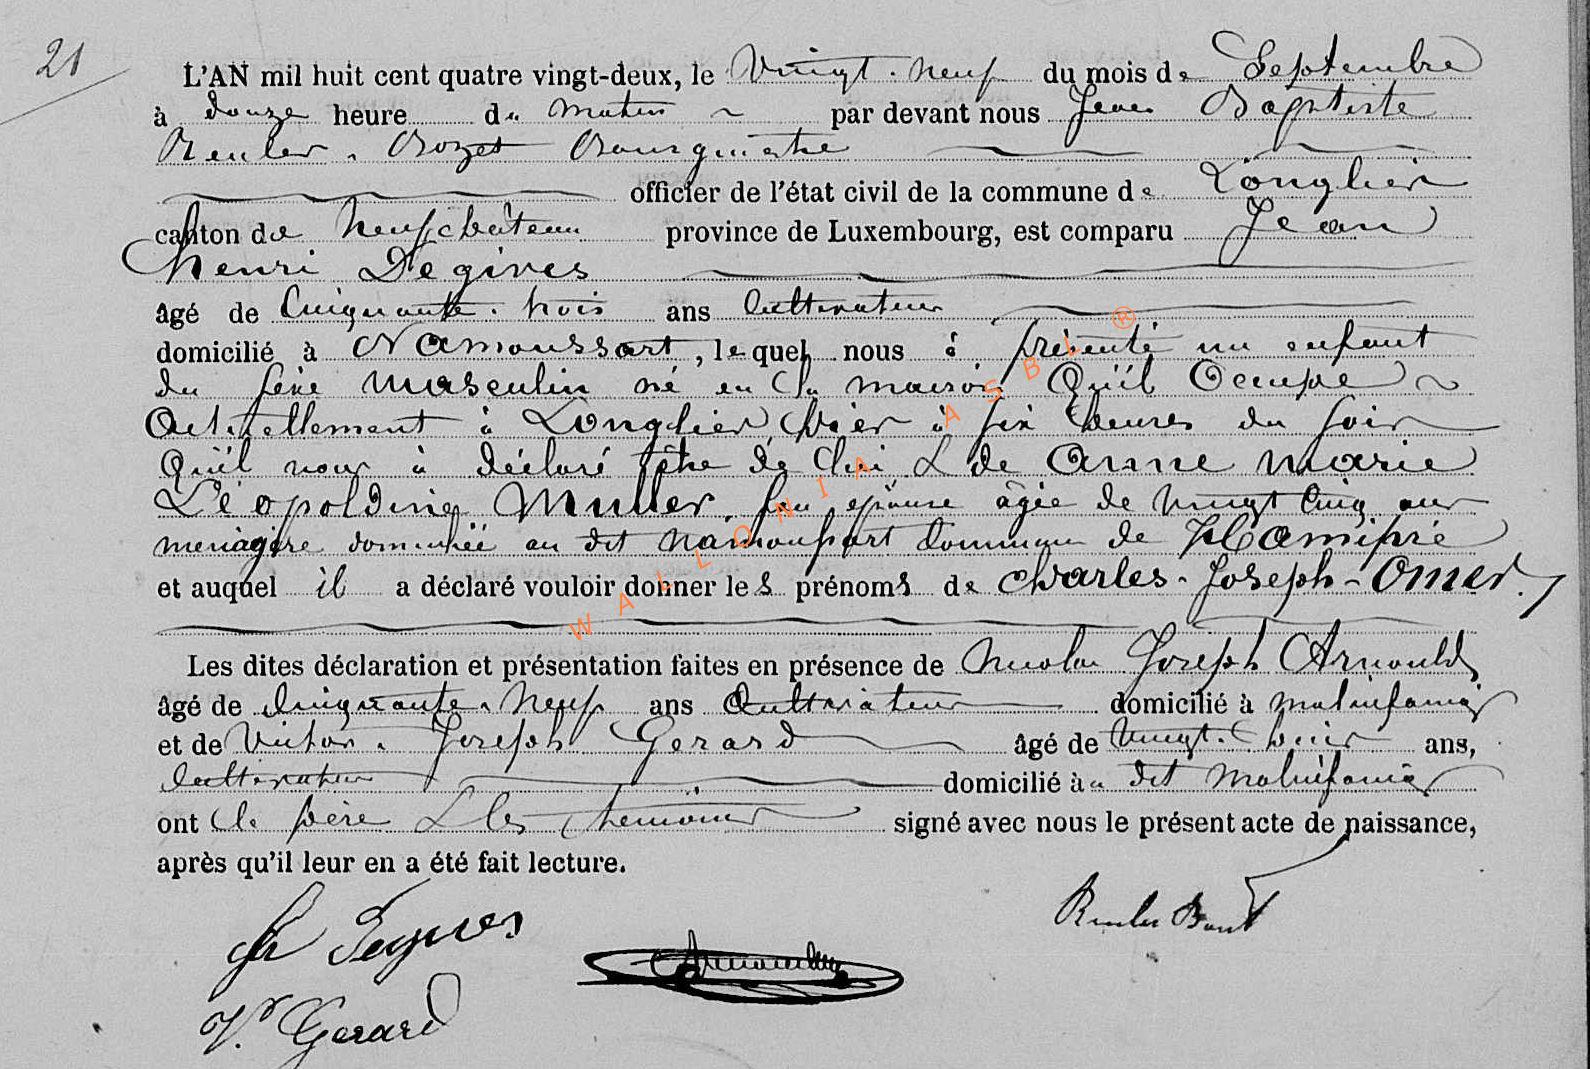 21
L'AN mil huit cent quatre vingt-deux, le Vingt-neuf du mois de Septembre
à douze heure du matin par devant nous Jean Baptiste
Reuler Bourgmestre
officier de l'état civil de la commune de Longlier
canton de Neufchâteau province de Luxembourg, est comparu Jean
Henri Degives
âgé de Cinquante trois ans Cultivateur
domicilié à Namoussart, lequel nous à présenté un enfant
du sexe masculin né en la maison Qu'il Occupe
Actuellement à Longlier, hier à six heures du soir
Qu'il nous à déclaré être de lui & de Anne Marie
Léopoldine Muller, son épouse âgée de vingt cinq ans
menagère domiciliée au dit Namoussart Commune de Hamipré
et auquel il a déclaré vouloir donner les prénoms de Charles-Joseph-Omer.
Les dites déclaration et présentation faites en présence de Nicolas Joseph Arnould
âgé de Cinquante-Neuf ans Cultivateur domicilié à Molinfaing
et de Victor Joseph Gerard âgé de Vingt-huit ans,
Cultivateur domicilié au dit Molinfaing
ont le père & les témoins signé avec nous le présent acte de naissance,
après qu'il leur en a été fait lecture.
Jh Degives
Arnould
V.r Gerard
WALLONIA ASBL ®